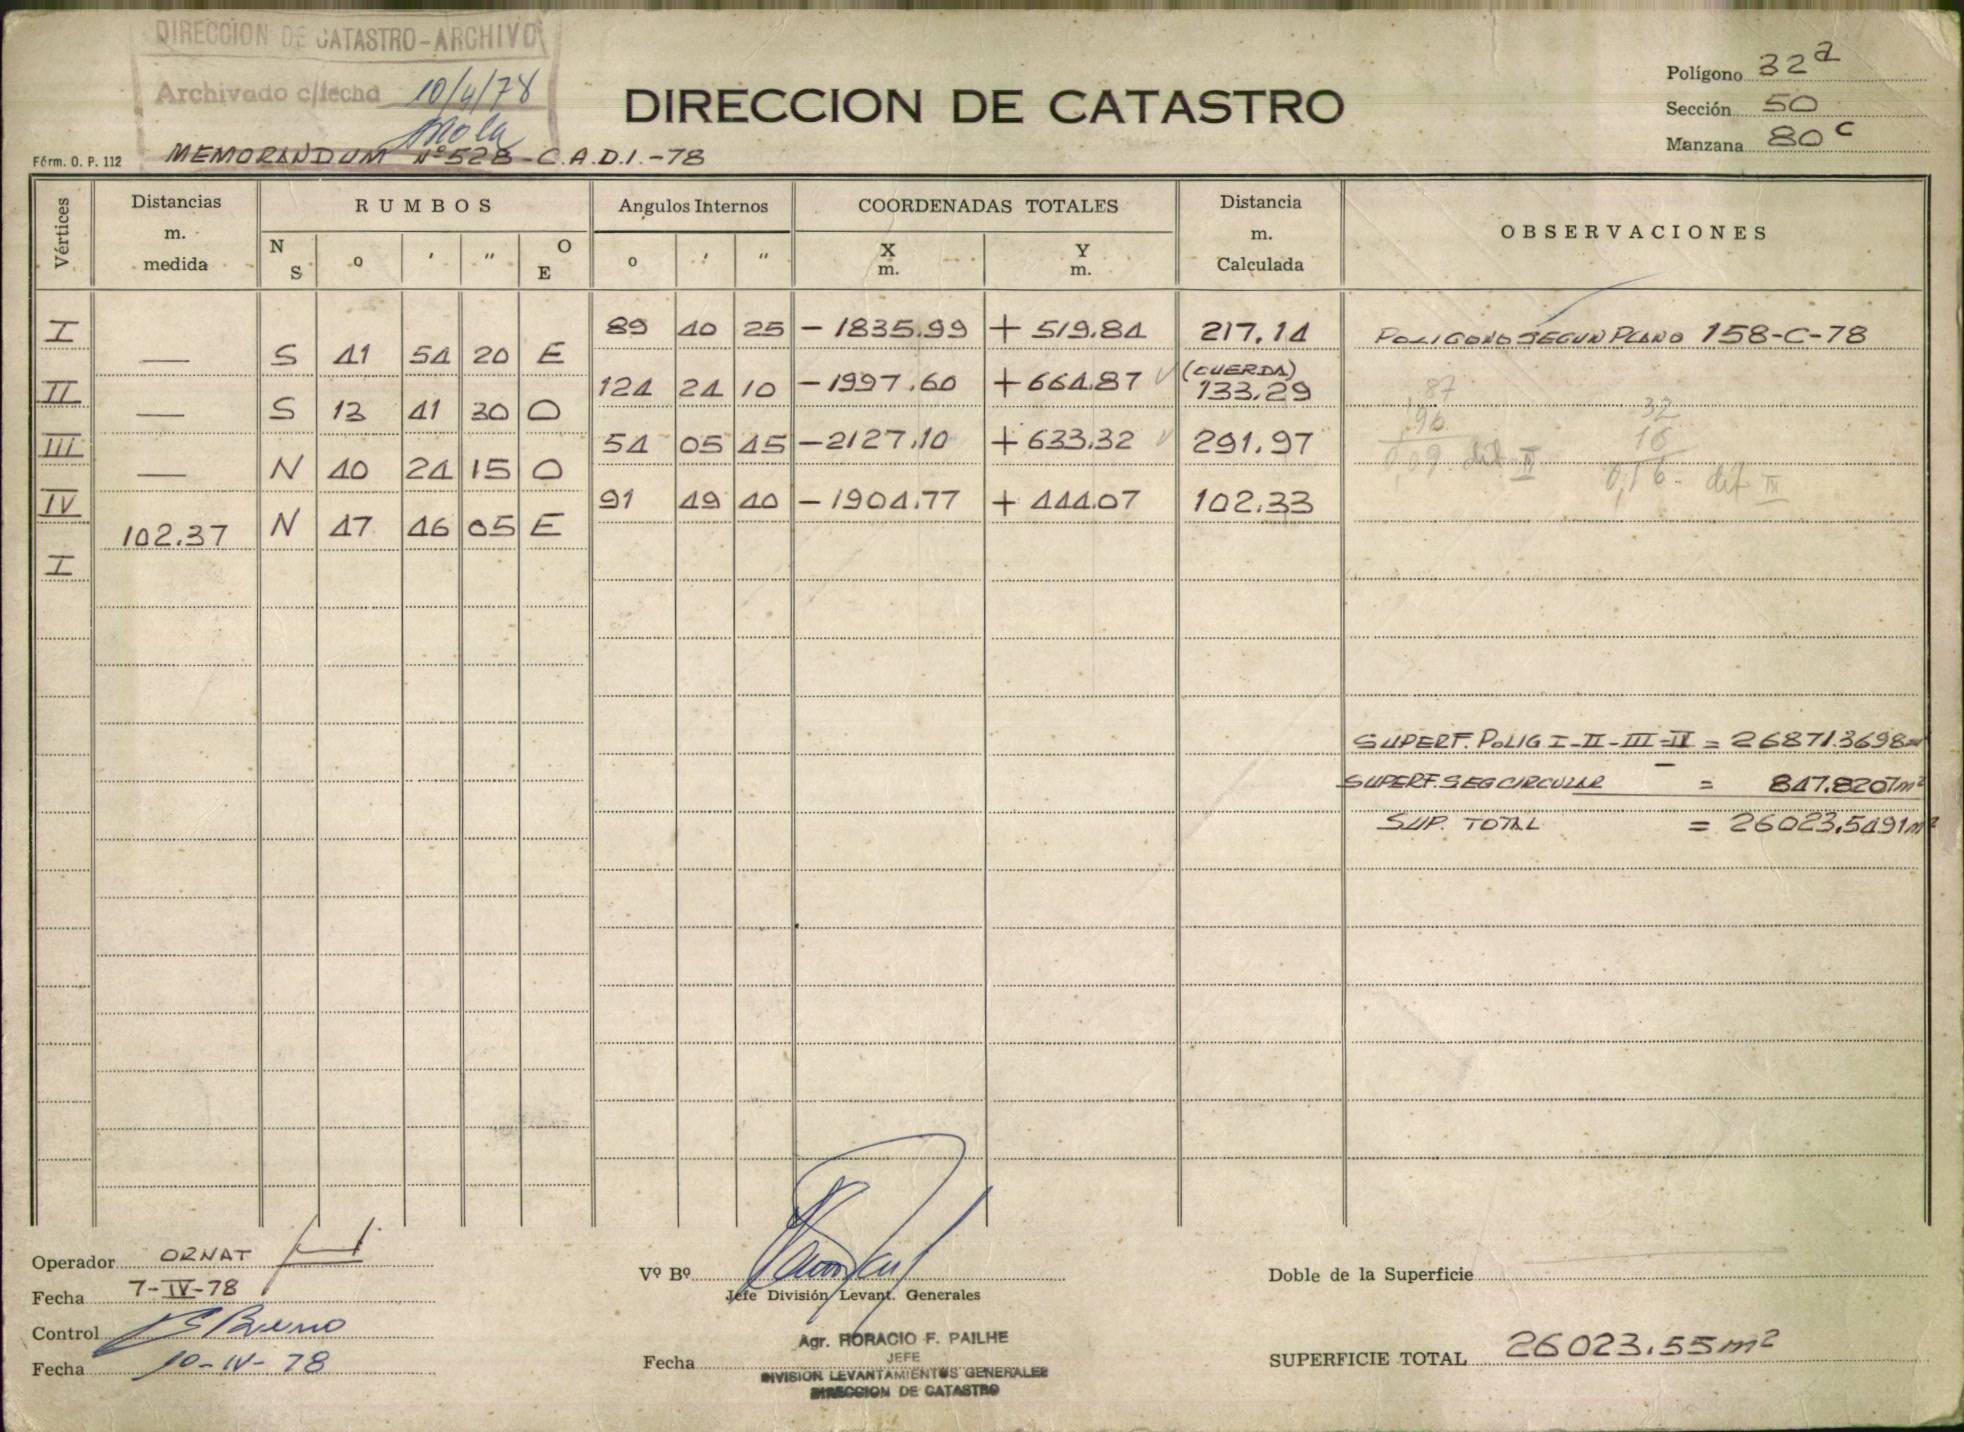 DIRECCION DE CATASTRO-ARCHIVO
Archivado c/fecha 10/4/78
DIRECCION DE CATASTRO
Polígono 32a
Sección 50
Manzana 80c
Fórm. O. P. 112 MEMORANDUM Nº 528-C.A.D.I.-78
Vértices Distancias m. medida RUMBOS N S o ' " O E Angulos Internos o ' " COORDENADAS TOTALES X m. Y m. Distancia m. Calculada OBSERVACIONES
I 89 40 25 - 1835.99 + 519.84 217.14 POLIGONO SEGUN PLANO 158-C-78
— S 41 54 20 E
II 124 24 10 - 1997.60 + 664.87 (CUERDA) 133.29
— S 13 41 30 O
III 54 05 45 - 2127.10 + 633.32 291.97
— N 40 24 15 O
IV 91 49 40 - 1904.77 + 444.07 102.33
102.37 N 47 46 05 E
I
87 32
96 16
0,09 dif II 0,16 - dif III
SUPERF. POLIG I-II-III-IV = 26871.3698m²
SUPERF. SEG CIRCULAR = 847.8207m²
SUP. TOTAL = 26023.5491m²
Operador ORNAT
Fecha 7-IV-78
Control Bueno
Fecha 10-IV-78
Vº Bº
Jefe División Levant. Generales
Agr. HORACIO F. PAILHE
JEFE
DIVISION LEVANTAMIENTOS GENERALES
DIRECCION DE CATASTRO
Fecha
Doble de la Superficie
SUPERFICIE TOTAL 26023.55m²